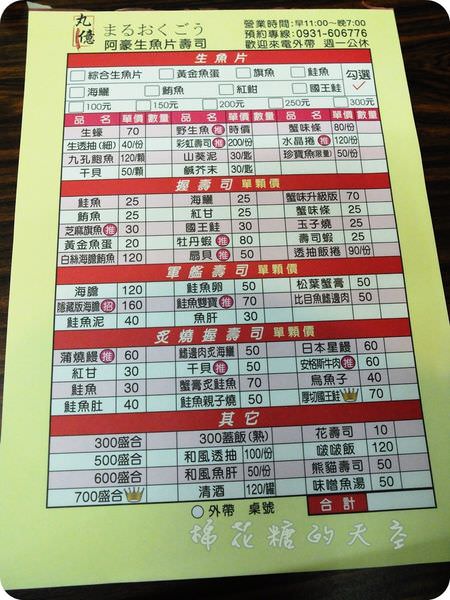 丸億 まるおくごう
阿豪生魚片壽司
營業時間:早11:00~晚7:00
預約專線:0931-606776
歡迎來電外帶 週一公休
生魚片
□綜合生魚片 □黃金魚蛋 □旗魚 □鮭魚 勾選
□海鱺 □鮪魚 □紅魽 □國王鮭 ✓
□100元 □150元 □200元 □250元 □300元
品名 單價 數量 品名 單價 數量 品名 單價 數量
生蠔 70 野生魚 推 時價 蟹味條 80/份
生透抽(細) 40/份 彩虹壽司 推 200/份 水晶捲 推 120/份
九孔鮑魚 120/顆 山葵泥 30/匙 珍寶魚(限量) 50/份
干貝 50/顆 鹹芥末 30/匙
握壽司 單顆價
鮭魚 25 海鱺 25 蟹味升級版 70
鮪魚 25 紅甘 25 蟹味條 25
芝麻旗魚 推 30 國王鮭 30 玉子燒 25
黃金魚蛋 20 牡丹蝦 推 80 壽司蝦 25
白絲海膽鮪魚 120 扇貝 推 50 透抽飯捲 90/份
軍艦壽司 單顆價
海膽 120 鮭魚卵 50 松葉蟹膏 50
隱藏版海膽 招 160 鮭魚雙寶 推 70 比目魚鰭邊肉 50
鮭魚泥 40 魚肝 30
炙燒握壽司 單顆價
蒲燒鰻 推 60 鰭邊肉炙海鱺 50 日本星鰻 60
紅甘 30 干貝 推 50 安格斯牛肉 推 60
鮭魚 30 蟹膏炙鮭魚 70 烏魚子 40
鮭魚肚 40 鮭魚親子燒 50 厚切國王鮭 70
其它
300盛合 300蓋飯(熱) 花壽司 10
500盛合 和風透抽 100/份 啵啵飯 120
600盛合 和風魚肝 50/份 熊貓壽司 50
700盛合 清酒 120/罐 味噌魚湯 50
○外帶 桌號 合計
棉花糖的天空